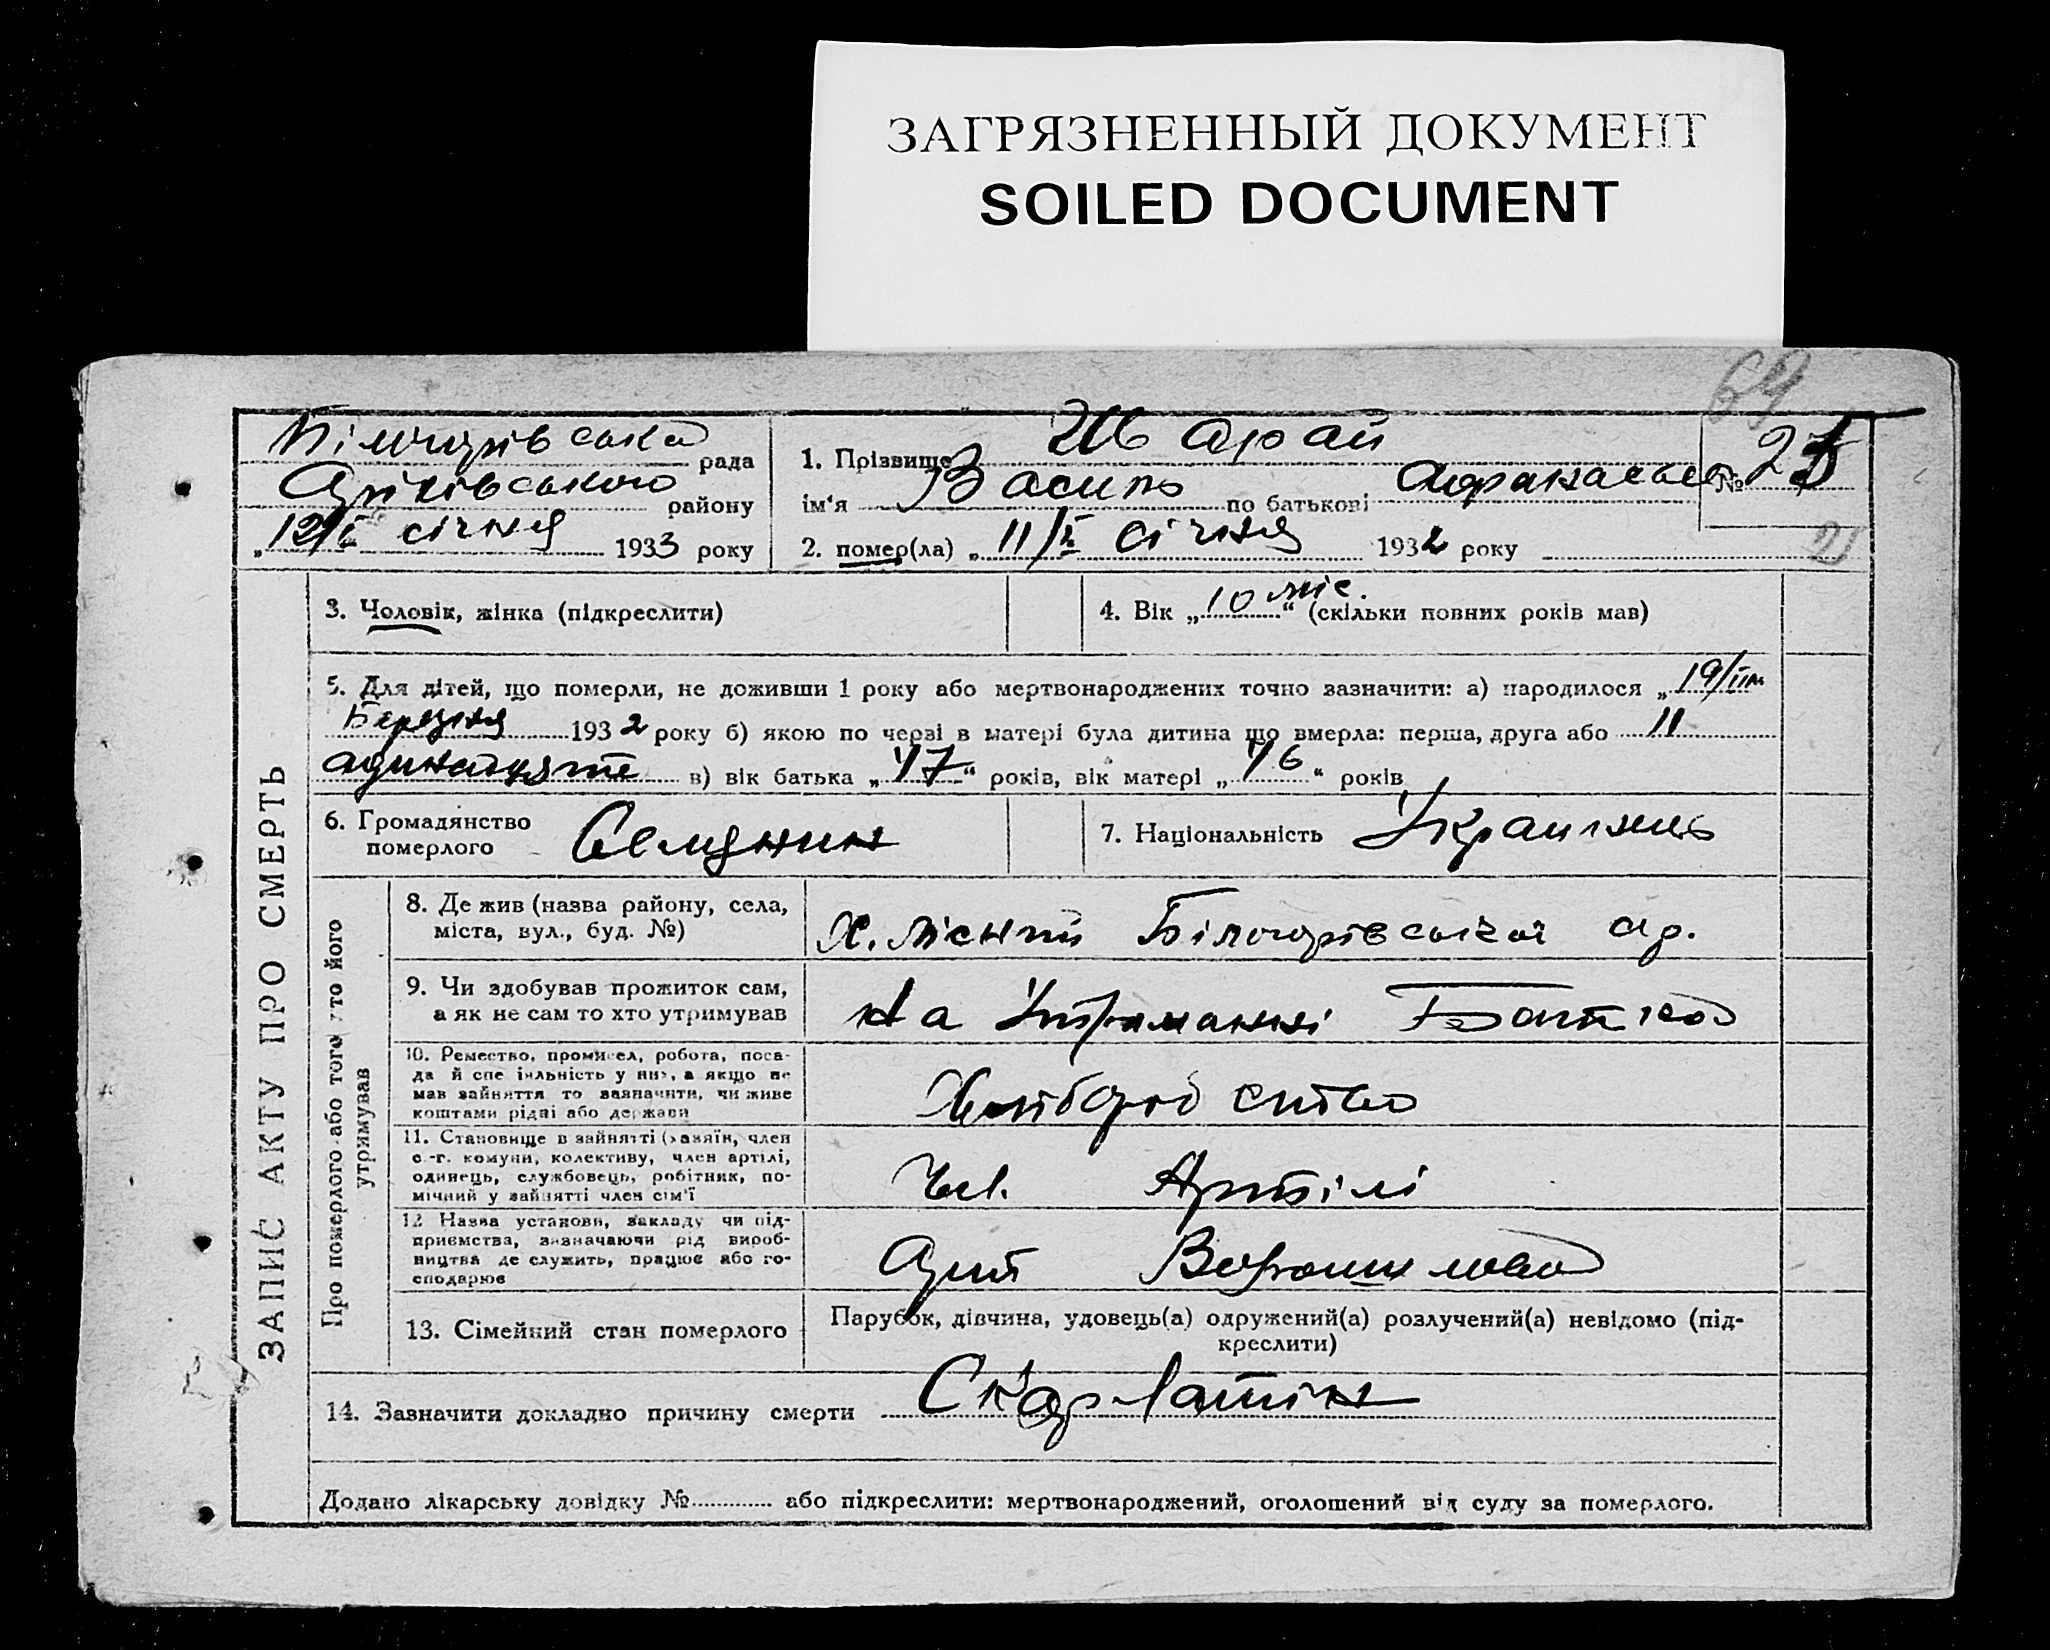 ЗАГРЯЗНЕННЫЙ ДОКУМЕНТ
SOILED DOCUMENT
69
рада
району
12/I січня 1933 року
1. Прізвище
ім'я Василь по батькові
№ 25
2. помер(ла) „ 11/I січня 1932 року
ЗАПИС АКТУ ПРО СМЕРТЬ
3. Чоловік, жінка (підкреслити)
4. Вік „ 10 міс. “ (скільки повних років мав)
5. Для дітей, що померли, не доживши 1 року або мертвонароджених точно зазначити: а) народилося „ 19/III
Березня 1932 року б) якою по черзі в матері була дитина що вмерла: перша, друга або 11
адинатцяте в) вік батька „ 47 “ років, вік матері „ 46 “ років
6. Громадянство
померлого Селянин
7. Національність Українець
Про померлого або того хто його
утримував
8. Де жив (назва району, села,
міста, вул., буд. №)
х. Лісний
9. Чи здобував прожиток сам,
а як не сам то хто утримував
На Утриманні Батька
10. Ремество, промисел, робота, поса-
да й спеціяльність у них, а якщо не
мав зайняття то зазначити, чи живе
коштами рідні або держави
Хліборобство
11. Становище в зайнятті (хазяїн, член
с.-г. комуни, колективу, член артілі,
одинець, службовець, робітник, по-
мічний у зайнятті член сім'ї
Чл. Артілі
12 Назва установи, закладу чи під-
приємства, зазначаючи рід вироб-
ництва де служить, працює або го-
сподарює
Арт Ворошилова
13. Сімейний стан померлого
Парубок, дівчина, удовець(а) одружений(а) розлучений(а) невідомо (під-
креслити)
14. Зазначити докладно причину смерти Скарлатін
Додано лікарську довідку № або підкреслити: мертвонароджений, оголошений від суду за померлого.